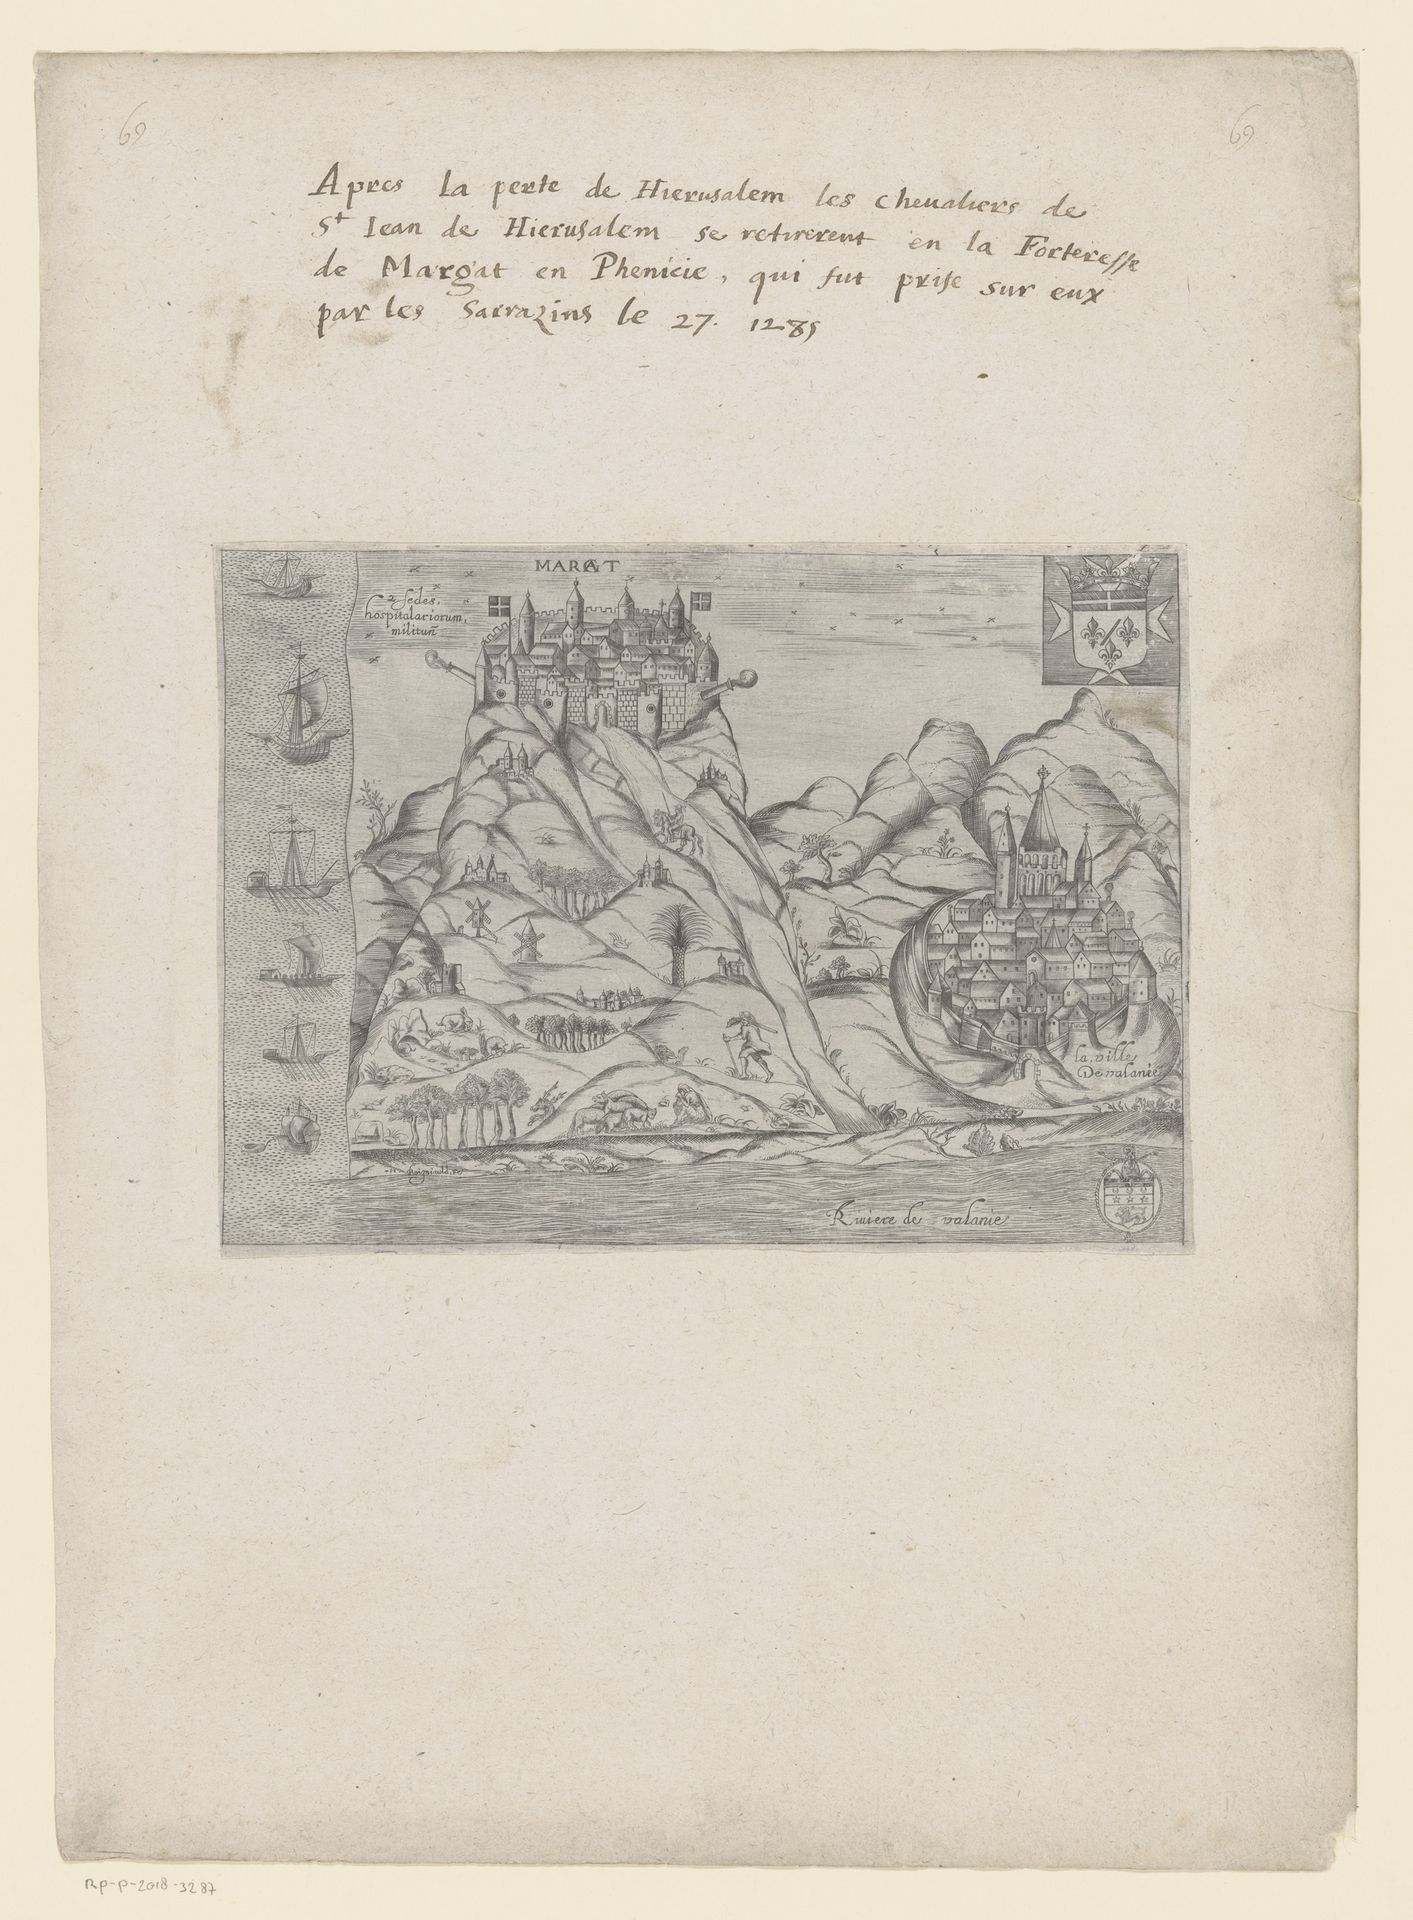 69
69
Apres la perte de Hierusalem les chevaliers de
St Iean de Hierusalem se retirerent en la Forteresse
de Margat en Phenicie, qui fut prise sur eux
par les Sarrazins le 27. 1285
MARGAT
2 sedes,
hospitalariorum,
militum̃
la ville
De valanie
Riviere de valanie
RP-P-2018-3287